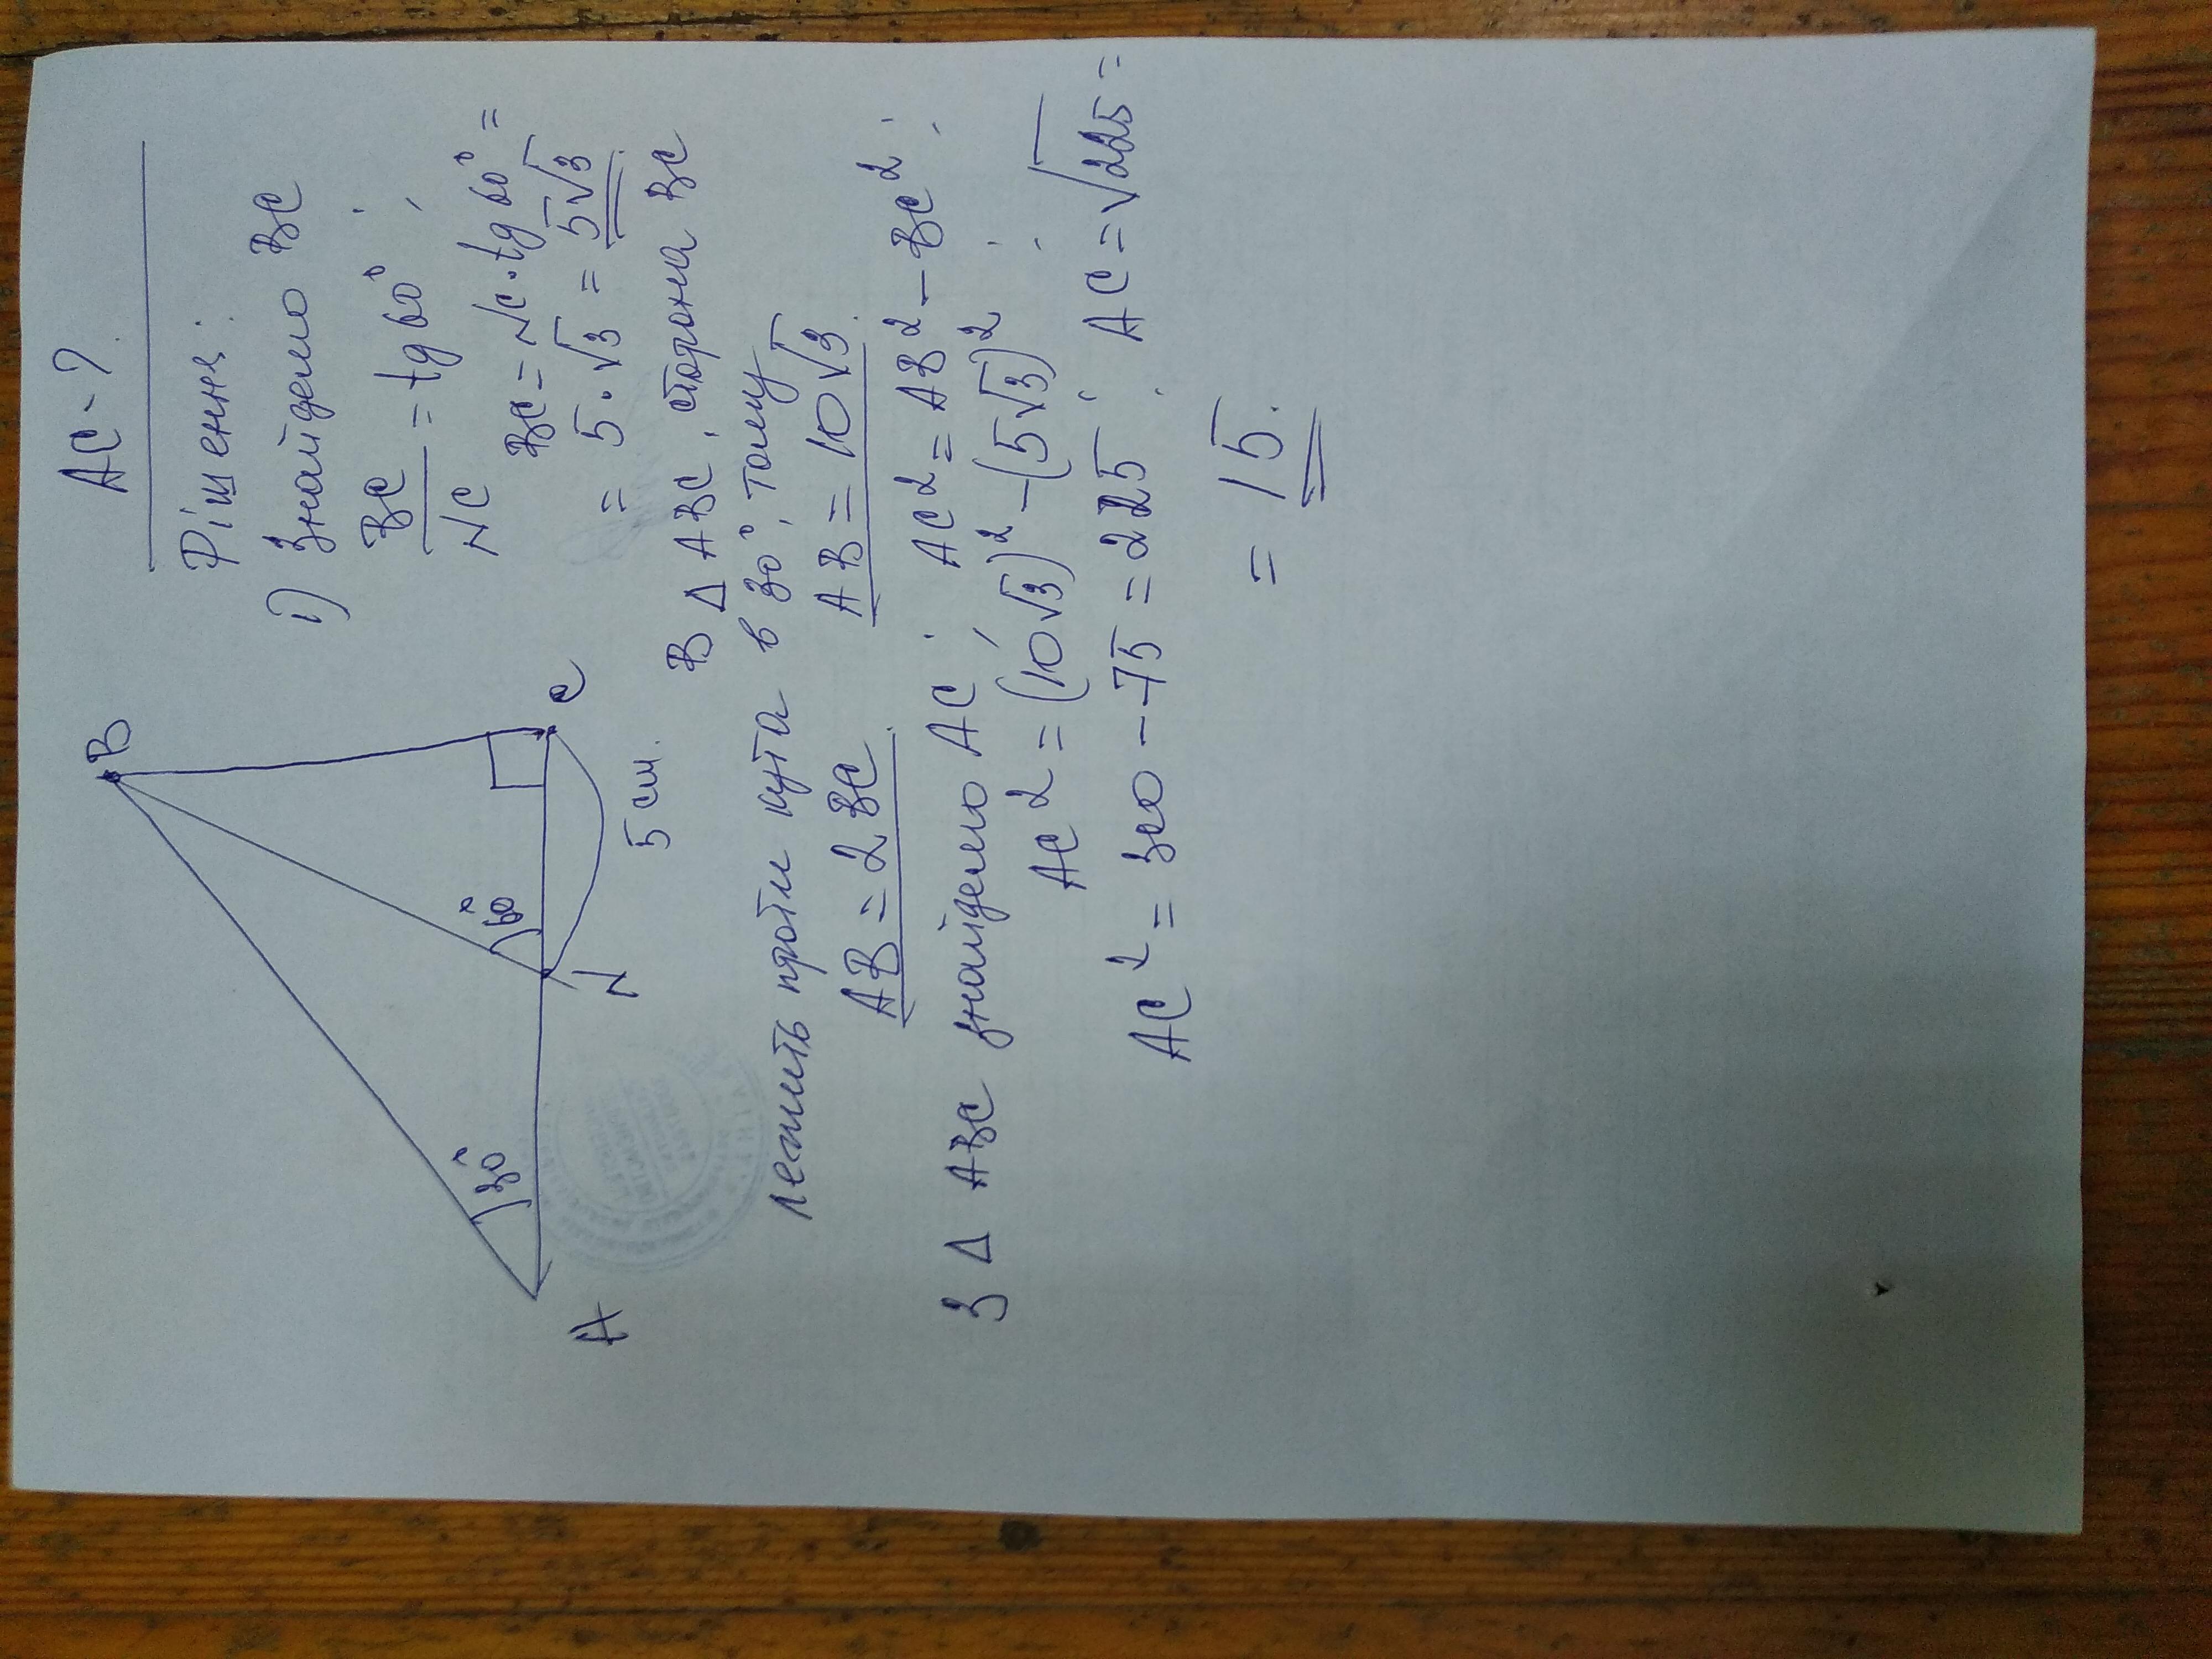 AC - ?
Рішення:
1) Знайдемо BC
BC/NC = tg 60°;
BC = NC · tg 60° =
= 5 · √3 = 5√3.
B
30°
60°
A
N
C
5 см.
В Δ ABC, сторона BC
лежить проти кута в 30°, тому
AB = 2BC
AB = 10√3.
З Δ ABC знайдемо AC: AC² = AB² - BC²;
AC² = (10√3)² - (5√3)²;
AC² = 300 - 75 = 225; AC = √225 =
= 15.